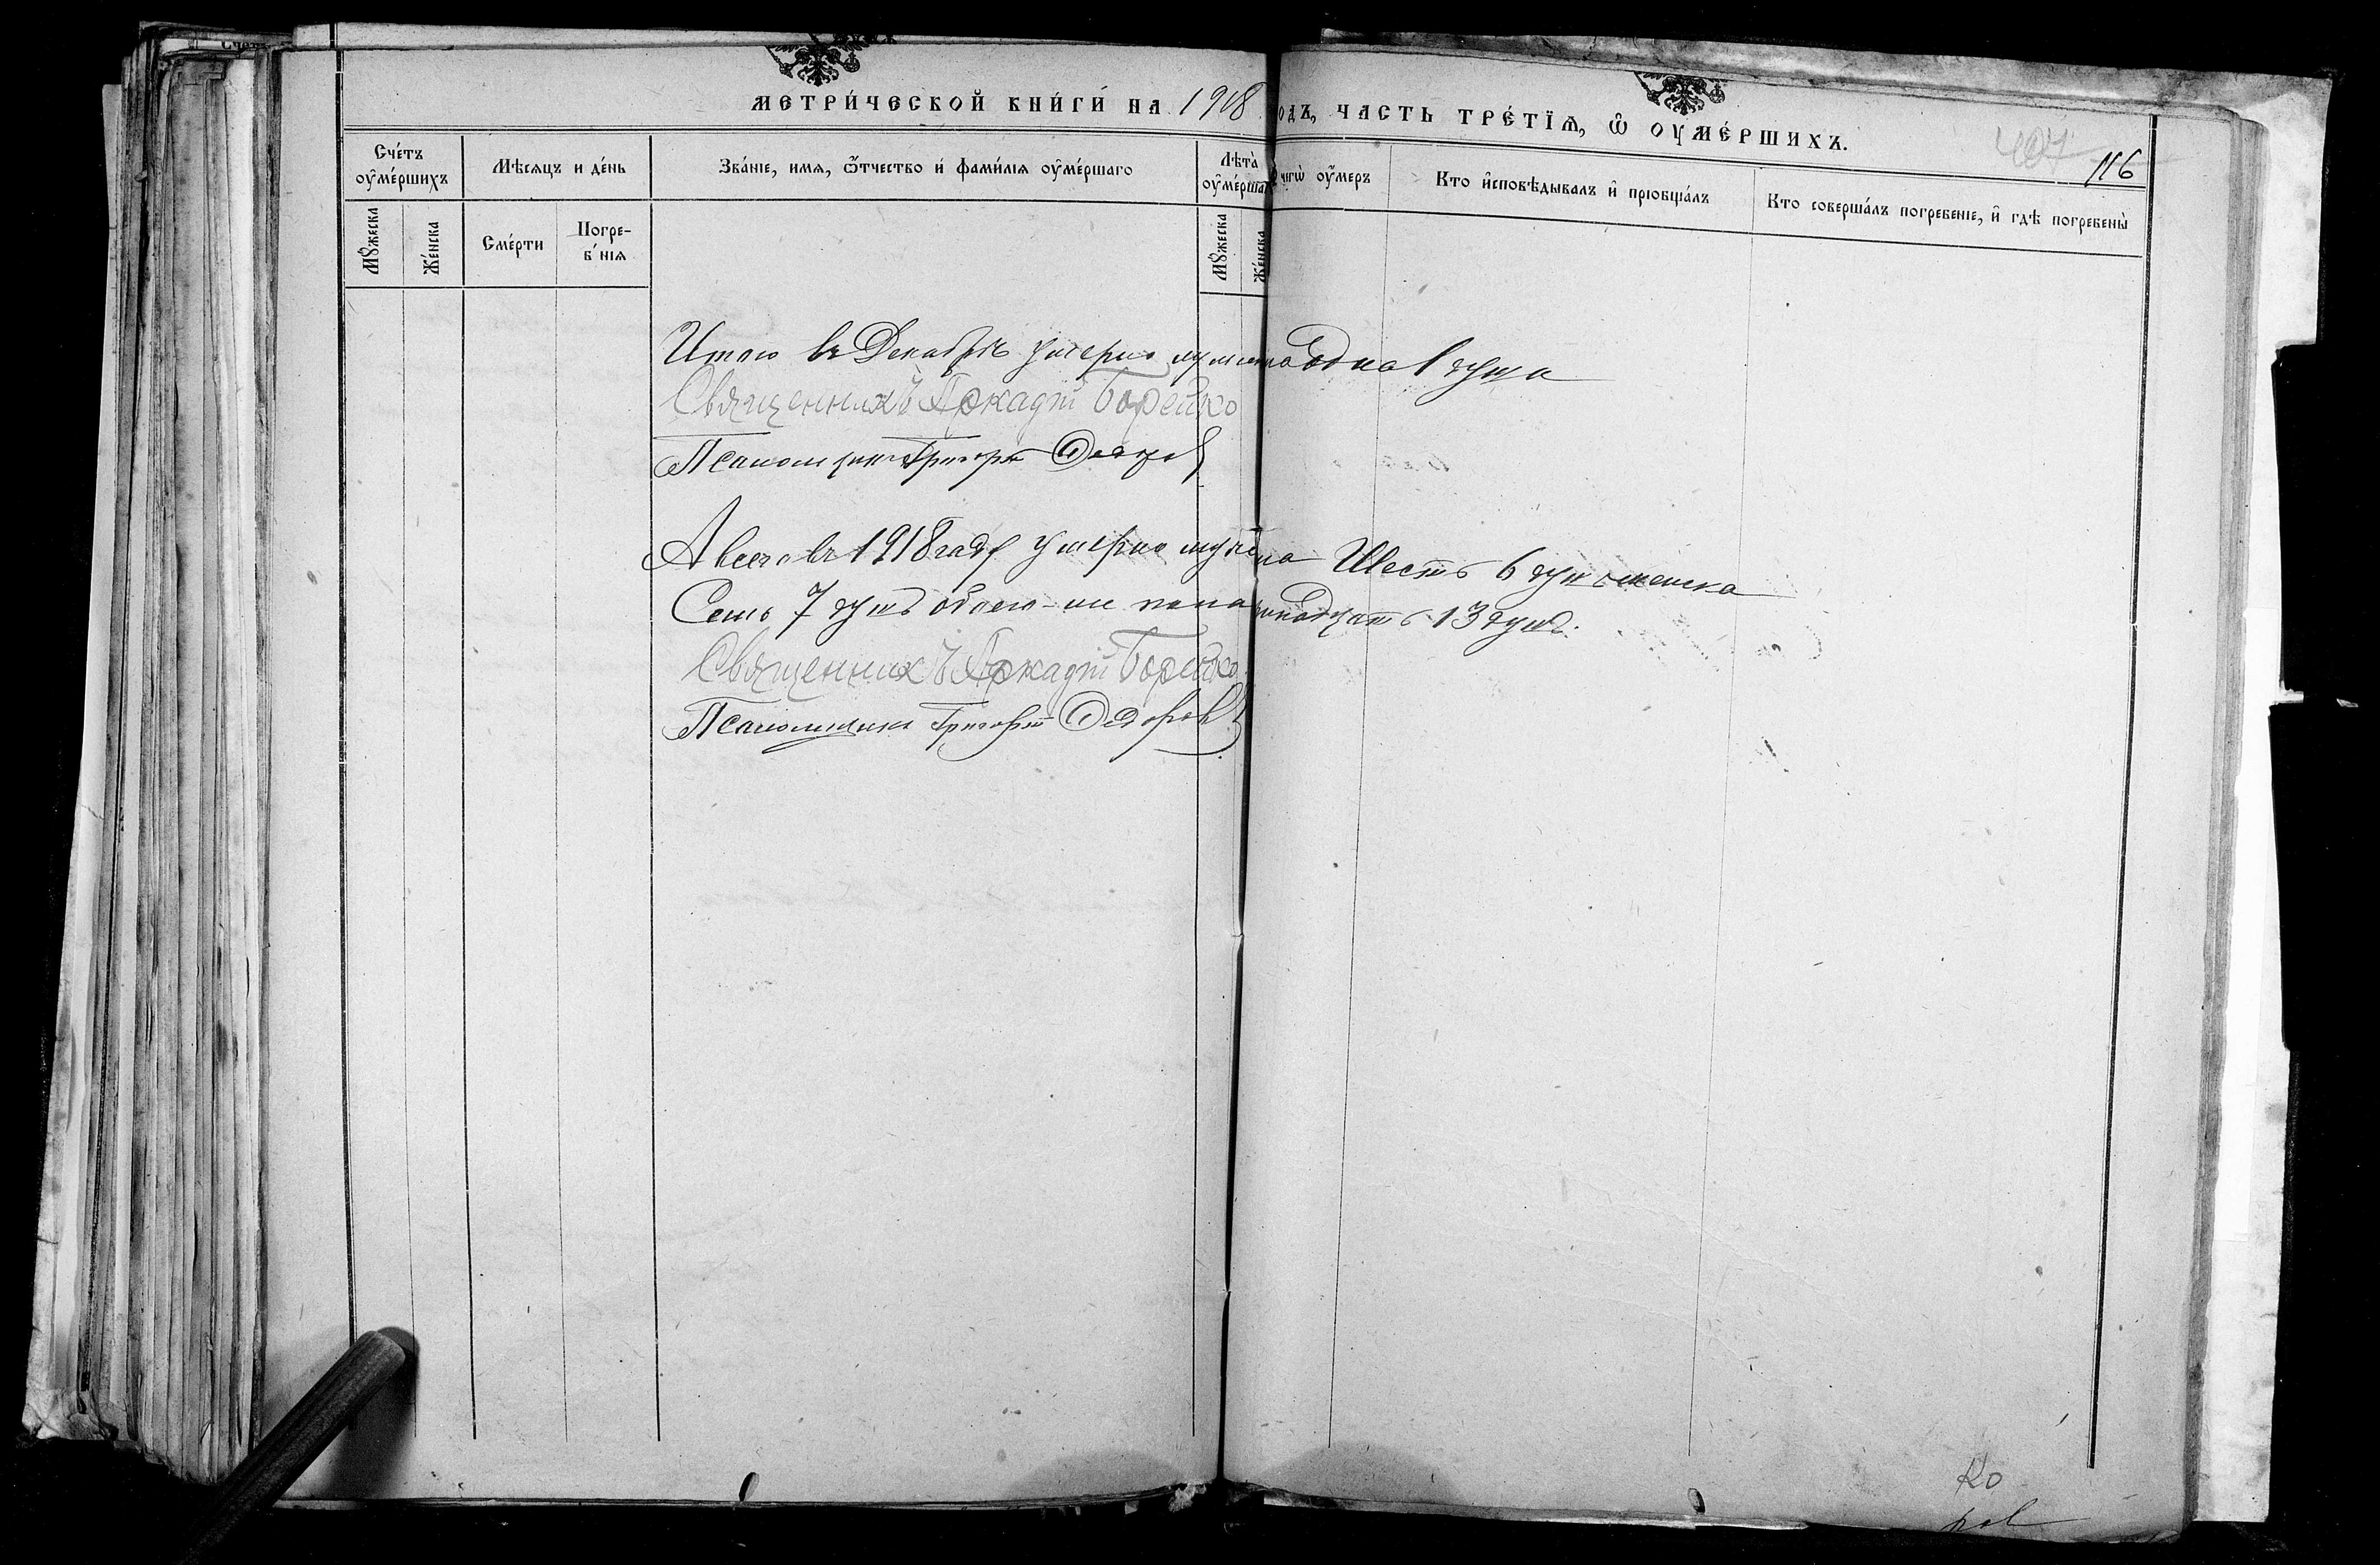 МЕТРИ́ЧЕСКОЙ КНИ́ГИ НА 1918 ОДЪ, ЧАСТЬ ТРЕ́ТЇѦ, Ѿ ОУМЕ́РШИХЪ.
407
116
Сче́тъ оумéршихъ
Мѣсяцъ и де́нь
Зва́нїе, имя, ѿтчество и фами́лїя оумéршаго
Лѣта̀ оумéрша
чегѡ̀ оумеръ
Кто исповѣдывалъ и прїобща́лъ
Кто соверша́лъ погребенїе, и гдѣ погребены̀
Мꙋжеска
Же́нска
Сме́рти
Погре-б́нїя
Мꙋжеска
Же́нска
Итого въ Декабрѣ умерло мужеска одна 1 душа
Священникъ Аркадій Борейко
Псаломщикъ Григорій Федоров
А всего въ 1918 году умерло мужеска Шесть 6 душъ женска
Семь 7 душъ обоего-же пола тринадцать 13 душъ.
Священникъ Аркадій Борейко
Псаломщикъ Григорій Федоров
Ко